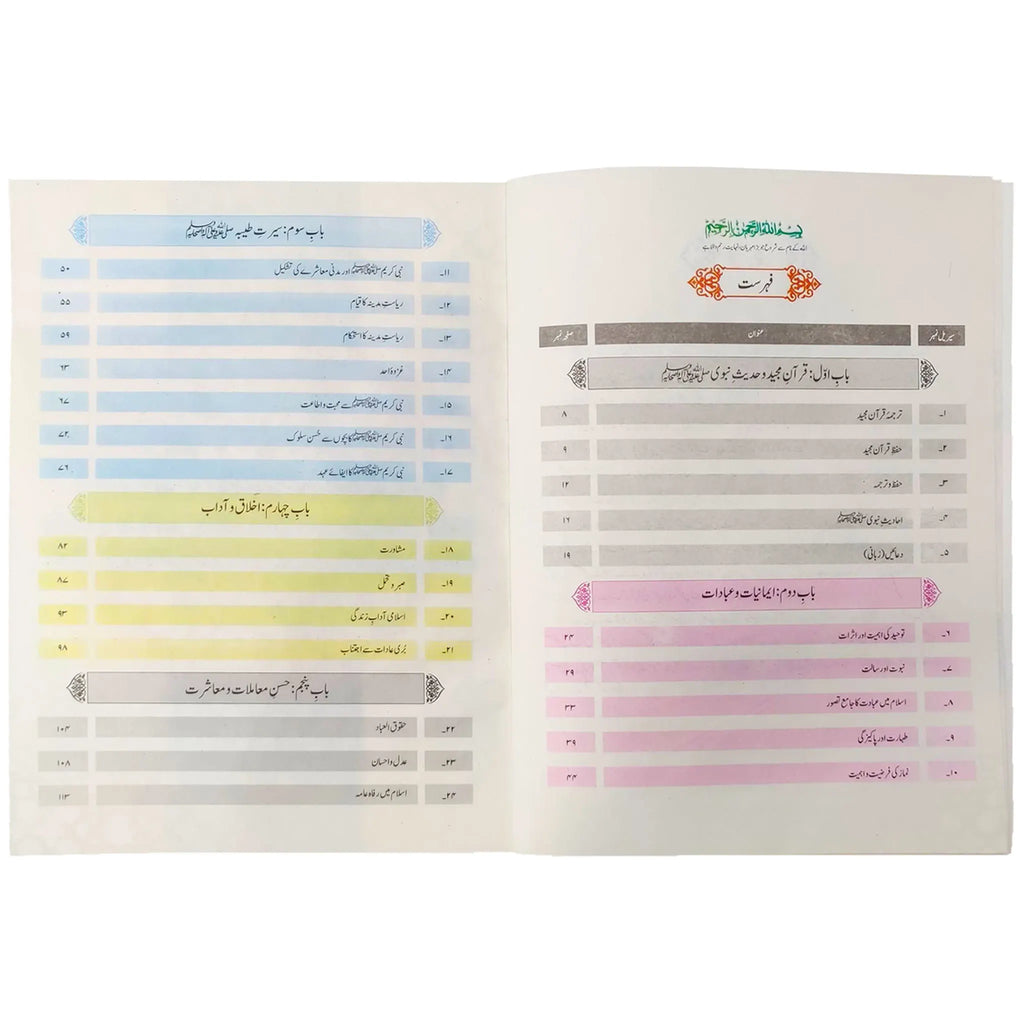 بِسْمِ اللهِ الرَّحْمٰنِ الرَّحِيْمِ
اللہ کے نام سے شروع جو بڑا مہربان، نہایت رحم والا ہے
فہرست
سیریل نمبر عنوان صفحہ نمبر
بابِ اوّل: قرآنِ مجید و حدیثِ نبوی صلی اللہ علیہ وعلی آلہ واصحابہ وسلم
۱۔ ترجمۂ قرآن مجید ۸
۲۔ حفظِ قرآن مجید ۹
۳۔ حفظ و ترجمہ ۱۲
۴۔ احادیثِ نبوی صلی اللہ علیہ وعلی آلہ واصحابہ وسلم ۱۶
۵۔ دعائیں (زبانی) ۱۹
بابِ دوم: ایمانیات و عبادات
۶۔ توحید کی اہمیت اور اثرات ۲۴
۷۔ نبوت اور رسالت ۲۹
۸۔ اسلام میں عبادت کا جامع تصور ۳۳
۹۔ طہارت اور پاکیزگی ۳۹
۱۰۔ نماز کی فرضیت و اہمیت ۴۴
بابِ سوم: سیرتِ طیبہ صلی اللہ علیہ وعلی آلہ واصحابہ وسلم
۱۱۔ نبی کریم صلی اللہ علیہ وعلی آلہ واصحابہ وسلم اور مدنی معاشرے کی تشکیل ۵۰
۱۲۔ ریاستِ مدینہ کا قیام ۵۵
۱۳۔ ریاستِ مدینہ کا استحکام ۵۹
۱۴۔ غزوۂ احد ۶۳
۱۵۔ نبی کریم صلی اللہ علیہ وعلی آلہ واصحابہ وسلم سے محبت و اطاعت ۶۷
۱۶۔ نبی کریم صلی اللہ علیہ وعلی آلہ واصحابہ وسلم کا بچوں سے حُسنِ سلوک ۷۲
۱۷۔ نبی کریم صلی اللہ علیہ وعلی آلہ واصحابہ وسلم کا ایفائے عہد ۷۶
بابِ چہارم: اَخلاق و آداب
۱۸۔ مشاورت ۸۲
۱۹۔ صبر و تحمل ۸۷
۲۰۔ اسلامی آدابِ زندگی ۹۳
۲۱۔ بُری عادات سے اجتناب ۹۸
بابِ پنجم: حسنِ معاملات و معاشرت
۲۲۔ حقوق العباد ۱۰۴
۲۳۔ عدل و احسان ۱۰۸
۲۴۔ اسلام میں رفاہ عامہ ۱۱۳